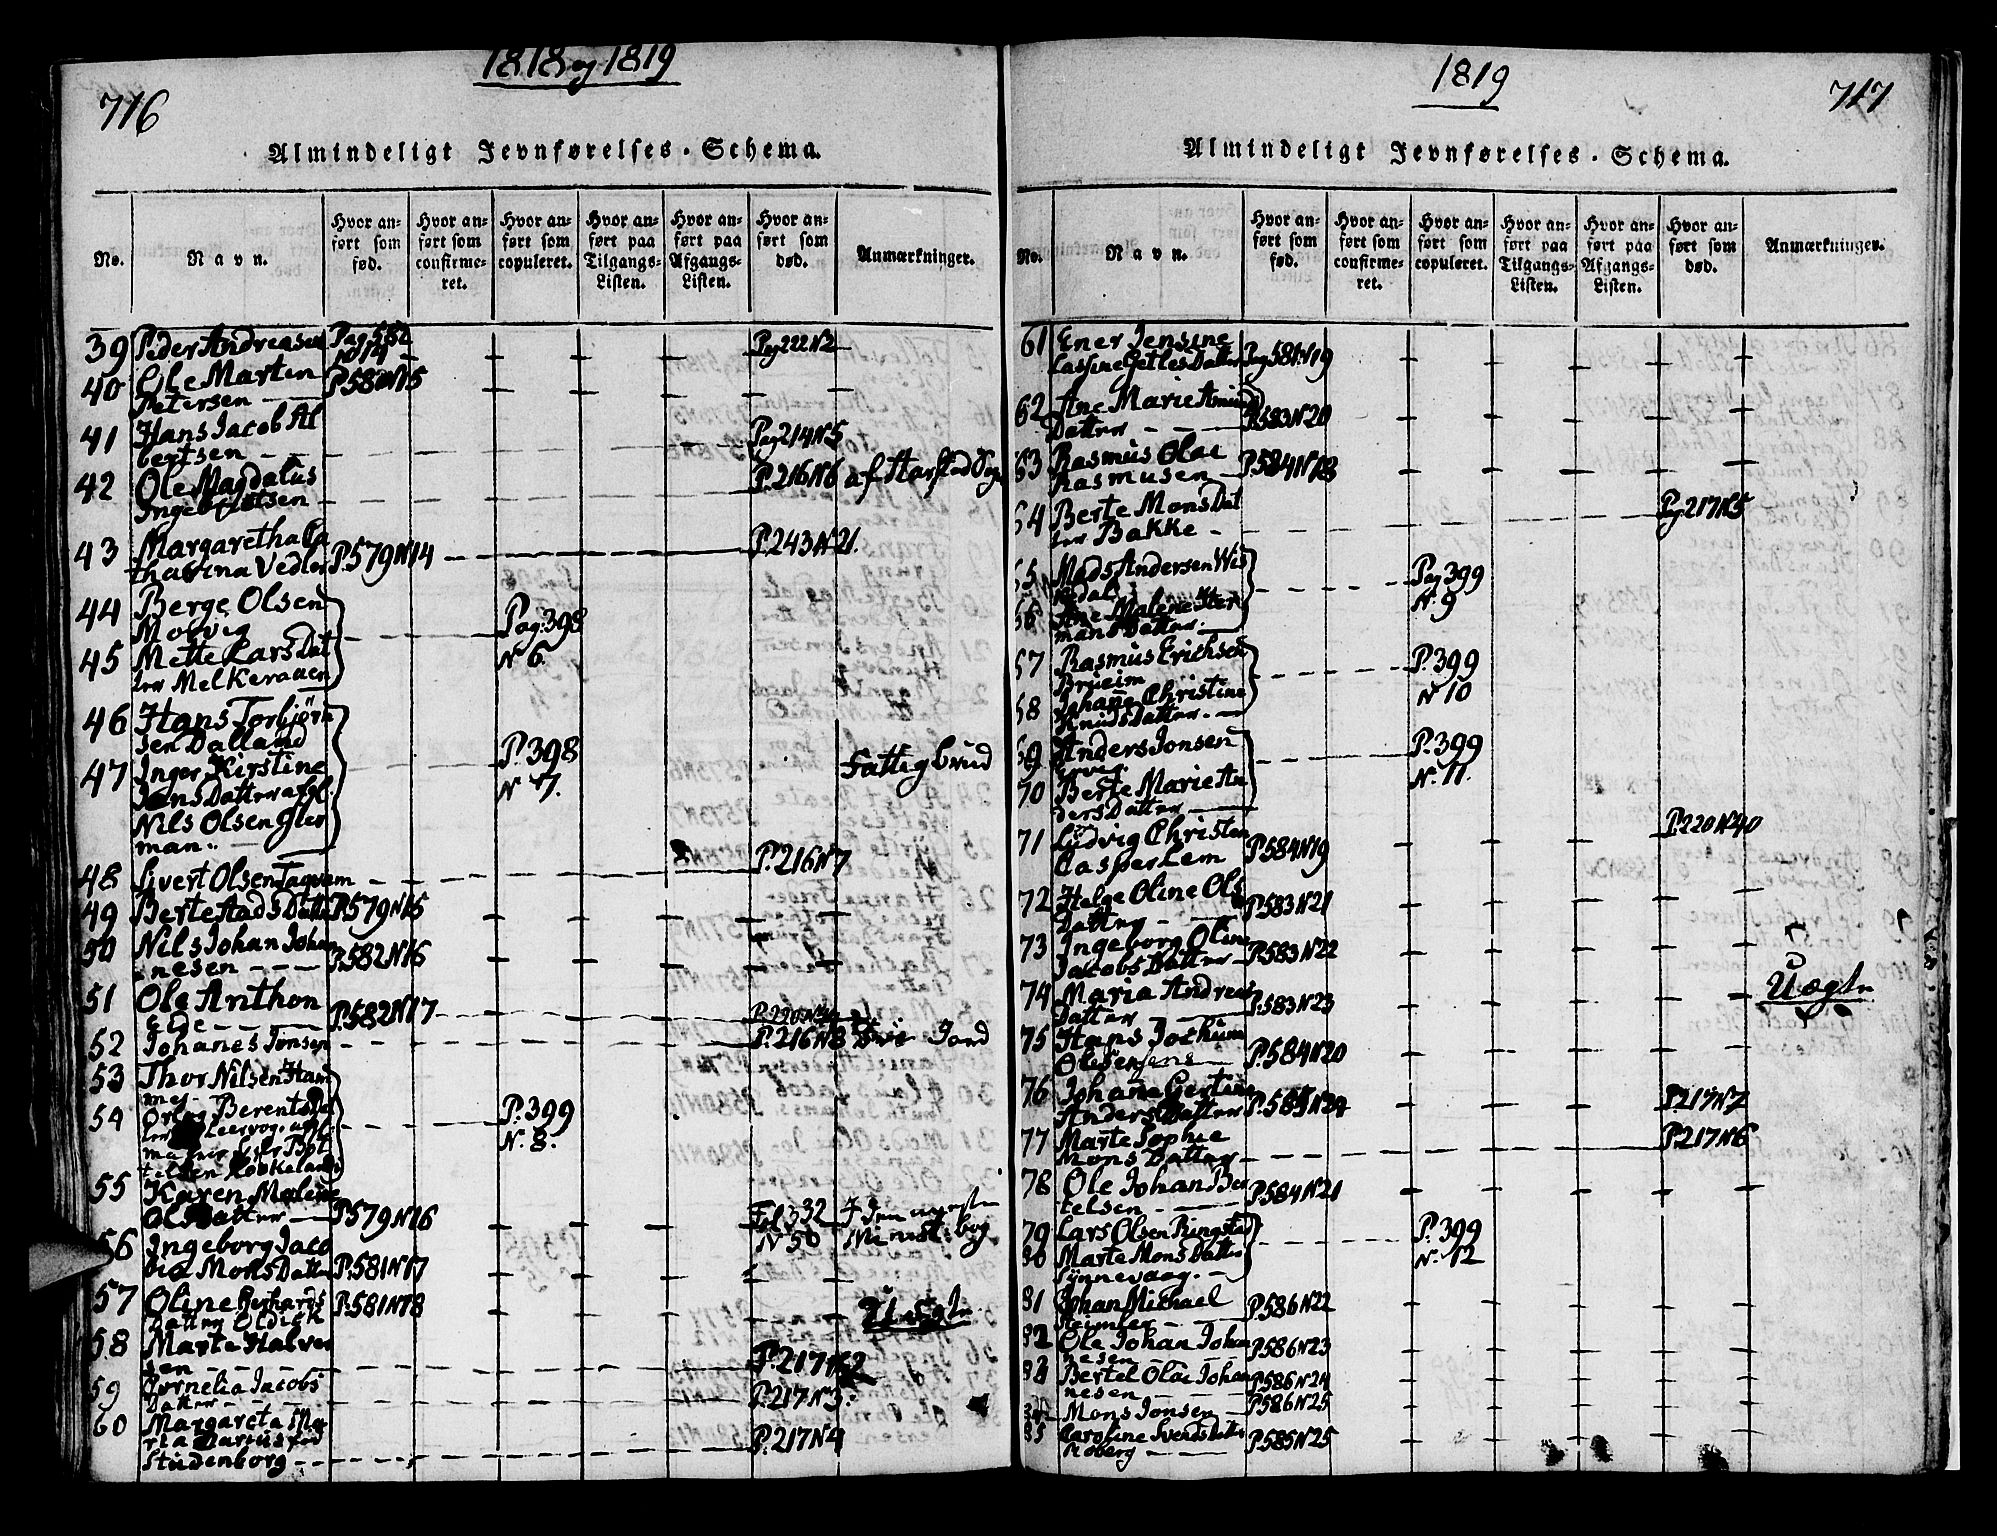 1818 og 1819
716
Almindeligt Jevnførelses-Schema.
No.
Navn.
Hvor anført som fød.
Hvor anført som confirmeret.
Hvor anført som copuleret.
Hvor anført paa Tilgangs-Listen.
Hvor anført paa Afgangs-Listen.
Hvor anført som død.
Anmærkninger.
39 Peder Andreasen Pag 582 N 14 Pag 222 N 2
40 Ole Marten
Petersen P. 582 N 15
41 Hans Jacob Al
bertsen Pag 214 N 5
42 Ole Magdalus
Ingebrigtsen P. 216 N 6 af Sogn
43 Margaretha Ca
tharina Vedler P. 579 N 14 P. 243 N 21.
44 Berge Olsen
Mobvig Pag. 398
45 Mette Lars Dat N 6
ter Melkeraaen
46 Hans Torbjörn
sen Dalland P. 398
47 Inger Kirstine N 7. Fattig Brud
Jens Datter afgl.
Nils Olsen Gler
man.
48 Sivert Olsen P. 216 N 7
49 Berte Datter P. 579 N 15
50 Nils Johan Johan
nesen P. 582 N 16
51 Ole Anthon
P. 582 N 17
52 Johanes Jonsen P. 216 N 8
53 Thor Nilsen Ham
mer
54 Berents Dat P. 399
ter N. 8.
55 Karen Malene
Ols Datter P. 579 N 16 Fol 332 N 50 I den nyeste Minist. bog
56 Ingeborg Jaco
bia Mons Datter P. 581 N 17
57 Oline Gerhards P. 581 N 18 Uægte.
Datter
58 Marte Halver
sen P. 217 N 2
59 Cornelia Jacobs
Datter P. 217 N 3.
60 Margareta Ma
ria
Studenborg P. 217 N 4
1819
717
Almindeligt Jevnførelses-Schema.
No.
Navn.
Hvor anført som fød.
Hvor anført som confirmeret.
Hvor anført som copuleret.
Hvor anført paa Tilgangs-Listen.
Hvor anført paa Afgangs-Listen.
Hvor anført som død.
Anmærkninger.
61 Ener Jensine
Datter Pag 581 N 19
62 Ane Marie
Datter P. 583 N 20
63 Rasmus Olai
Rasmusen P. 584 N 18
64 Berte Mons Dat
ter Bakke Pag 217 N 5
65 Mads Andersen Wis
dal Pag 399
66 Ane Malene Her N. 9
mans Datter.
67 Rasmus Erichsen
Brueim P. 399
68 Johane Christine N 10
Knuds Datter.
69 Anders Jonsen
P. 399
70 Berte Marie An N. 11.
ders Datter
71 Ludvig Christian
Casper Lem P. 584 N 19 P. 220 N 40
72 Helge Oline Ols
Datter P. 583 N 21
73 Ingeborg Oline
Jacobs Datter P. 583 N 22
74 Maria Andreas
Datter P. 583 N 23 Uægte
75 Hans Jochum
Olesen P. 584 N 20
76 Johane Gertine
Anders Datter P. 585 N 24 P. 217 N 7
77 Marte Sophie
Mons Datter P. 217 N 6
78 Ole Johan Ber
telsen P. 584 N 21
79 Lars Olsen Ringstad P. 399
80 Marte Mons Datter N. 12
Synnevaag.
81 Johan Michael
P. 586 N 22
82 Ole Johan Johan
nesen P. 586 N 23
Bertel Olai Johan
nesen P. 586 N 24
84 Mons Jonsen P. 586 N 25
85 Caroline Svends Datter
Moberg P. 585 N 25